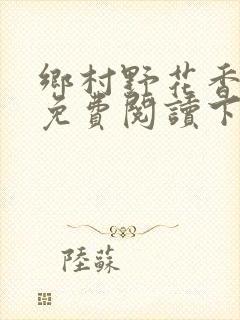 鄉村野花香
免費閱讀下
陸蘇